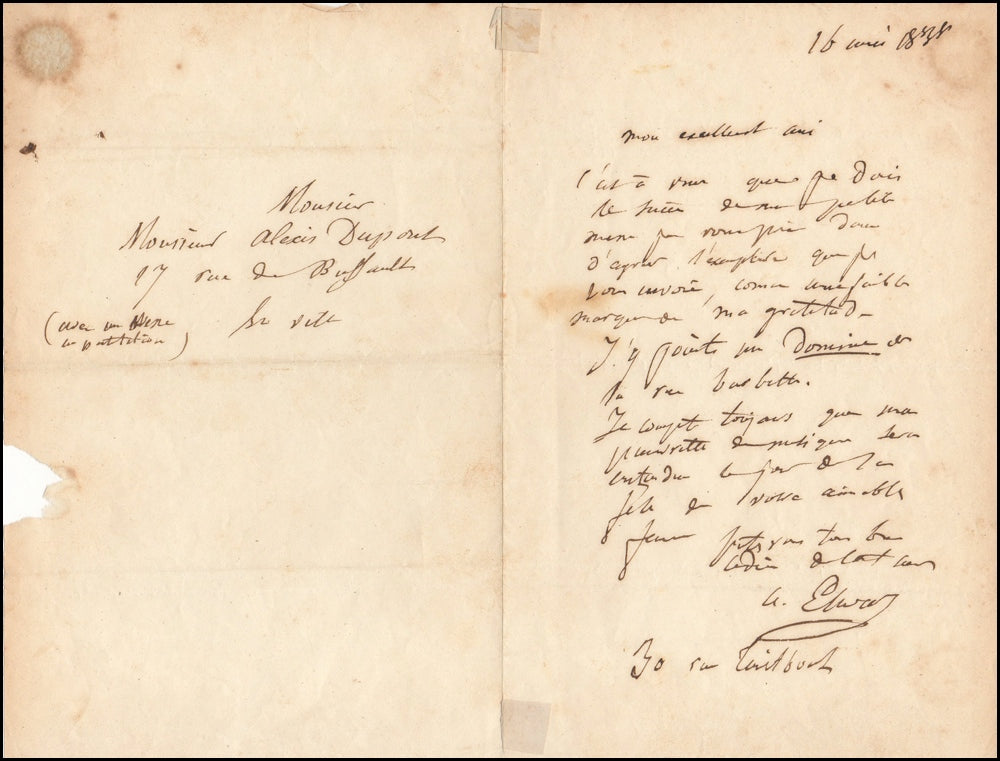 Monsieur
Monsieur Alexis Dupont
17 rue de Buffault
(avec une Messe
en partition)
En ville
16 1838
mon excellent ami
C'est à vous que je dois
le succès de ma petite
messe je vous prie donc
d'agréer l'exemplaire que je
vous envoie, comme une faible
marque de ma gratitude
J'y joints un Domine de
la rue barbette.
Je compte toujours que ma
pauvrette de musique sera
entendue le jour de la
fête de votre aimable
femme
de tout cœur
a. Elwart
30 rue Taitbout